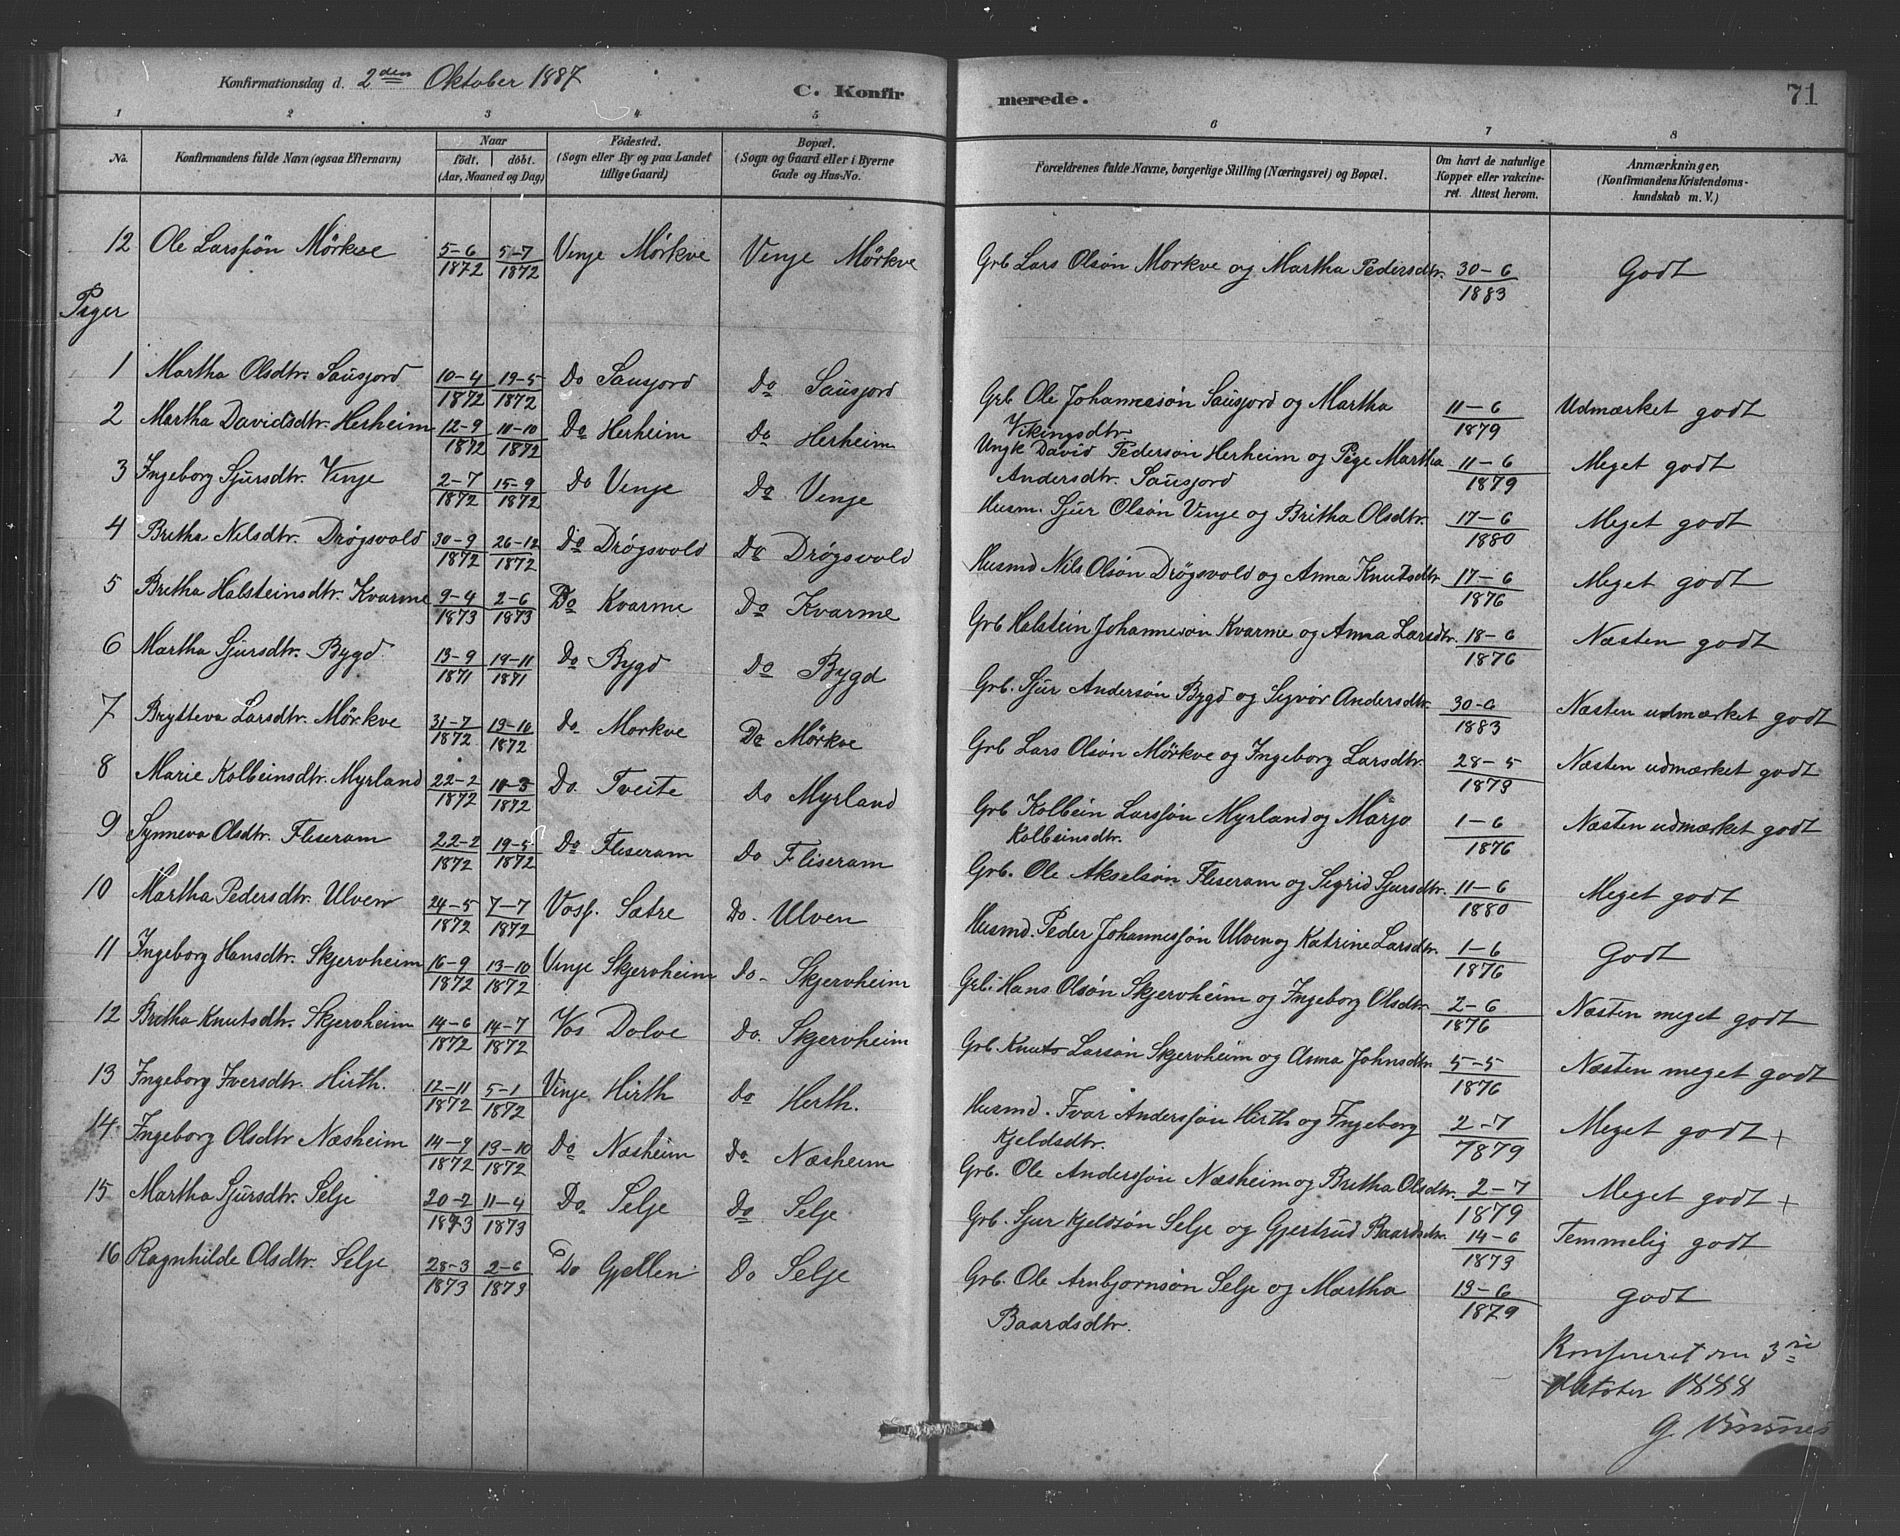 Konfirmationsdag d. 2den Oktober 1887 C. Konfirmerede. 71
1 2 3 4 5 6 7 8
No. Konfirmandens fulde Navn (ogsaa Efternavn) Naar født. døbt. (Aar, Maaned og Dag) Fødested. (Sogn eller By og paa Landet tillige Gaard) Bopæl. (Sogn og Gaard eller i Byerne Gade og Hus-No. Forældrenes fulde Navne, borgerlige Stilling (Næringsvei) og Bopæl. Om havt de naturlige Kopper eller vakcineret. Attest herom. Anmærkninger, (Konfirmandens Kristendomskundskab m. V.)
12 Ole Larssøn Mörkve 5-6 1872 5-7 1872 Vinje Mörkve Vinje Mörkve Grb Lars Olsøn Morkve og Martha Pedersdtr. 30-6 1883 Godt
Piger
1 Martha Olsdtr. Sausjord 10-4 1872 19-5 1872 Do Sausjord Do Sausjord Grb. Ole Johannessøn Sausjord og Martha Vikingsdtr 11-6 1879 Udmærket godt
2 Martha Davidsdtr. Herheim 12-9 1872 10-10 1872 Do Herheim Do Herheim Ungk David Pedersøn Herheim og Pige Martha Andersdtr. Sausjord 11-6 1879 Meget godt
3 Ingeborg Sjursdtr. Vinje 2-7 1872 15-9 1872 Do Vinje Do Vinje Husm. Sjur Olsøn Vinje og Britha Olsdtr. 17-6 1880 Meget godt
4 Britha Nilsdtr. Drøgsvold 30-9 1872 26-12 1872 Do Drøgsvold Do Drøgsvold Husmd Nils Olsøn Drøgsvold og Anna Knutsdtr 17-6 1876 Meget godt
5 Britha Halsteinsdtr. Kvarme 9-4 1873 2-6 1873 Do Kvarme Do Kvarme Grb Halstein Johannesøn Kvarme og Anna Larsdtr. 18-6 1876 Næsten godt
6 Martha Sjursdtr. Bygd 13-9 1871 19-11 1871 Do Bygd Do Bygd Grb. Sjur Andersøn Bygd og Sigvor Andersdtr. 30-6 1883 Næsten udmærket godt
7 Brytteva Larsdtr. Mörkve 31-7 1872 13-10 1872 Do Morkve Do Mörkve Grb Lars Olsøn Mörkve og Ingeborg Larsdtr. 28-5 1879 Næsten udmærket godt
8 Marie Kolbeinsdtr. Myrland 22-2 1872 10-3 1872 Do. Tveite Do Myrland Grb Kolbein Larssøn Myrland og Marjo Kolbeinsdtr. 1-6 1876 Næsten udmærket godt
9 Synneva Olsdtr. Fliseram 22-2 1872 19-5 1872 Do Fliseram Do Fliseram Grb. Ole Akselsøn Fliseram og Sigrid Sjursdtr. 11-6 1880 Meget godt
10 Martha Pedersdtr. Ulven 24-5 1872 7-7 1872 Voss. Sætre Do. Ulven Husmd. Peder Johannessøn Ulven og Katrine Larsdtr. 1-6 1876 Godt
11 Ingeborg Hansdtr. Skjervheim 16-9 1872 13-10 1872 Vinje Skjervheim Do. Skjervheim Grb. Hans Olsøn Skjervheim og Ingeborg Olsdtr. 2-6 1876 Næsten meget godt
12 Britha Knutsdtr. Skjervheim 14-6 1872 14-7 1872 Vos Dolve Do. Skjervheim Grb Knut Larsøn Skjervheim og Anna Johnsdtr. 5-5 1876 Næsten meget godt
13 Ingeborg Iversdtr. Hirth. 12-11 1872 5-1 1872 Vinje Hirth Do Herth. Husmd. Ivar Anderssøn Hirth og Ingeborg Kjeldsdtr. 2-7 7879 Meget godt +
14 Ingeborg Olsdtr Næsheim 14-9 1872 13-10 1872 Do Næsheim Do Næsheim Grb. Ole Anderssøn Næsheim og Britha Olsdtr. 2-7 1879 Meget godt +
15 Martha Sjursdtr. Selje 20-2 1873 11-4 1873 Do Selje Do Selje Grb. Sjur Kjeldsøn Selje og Gjertrud Baardsdtr. 14-6 1879 Temmelig godt
16 Ragnhilde Olsdtr. Selje 28-3 1873 2-6 1873 Do Gjellen Do Selje Grb. Ole Arnbjørnsøn Selje og Martha Baardsdtr. 13-6 1879 Godt
Konfereret den 3
Oktober 1888
G.